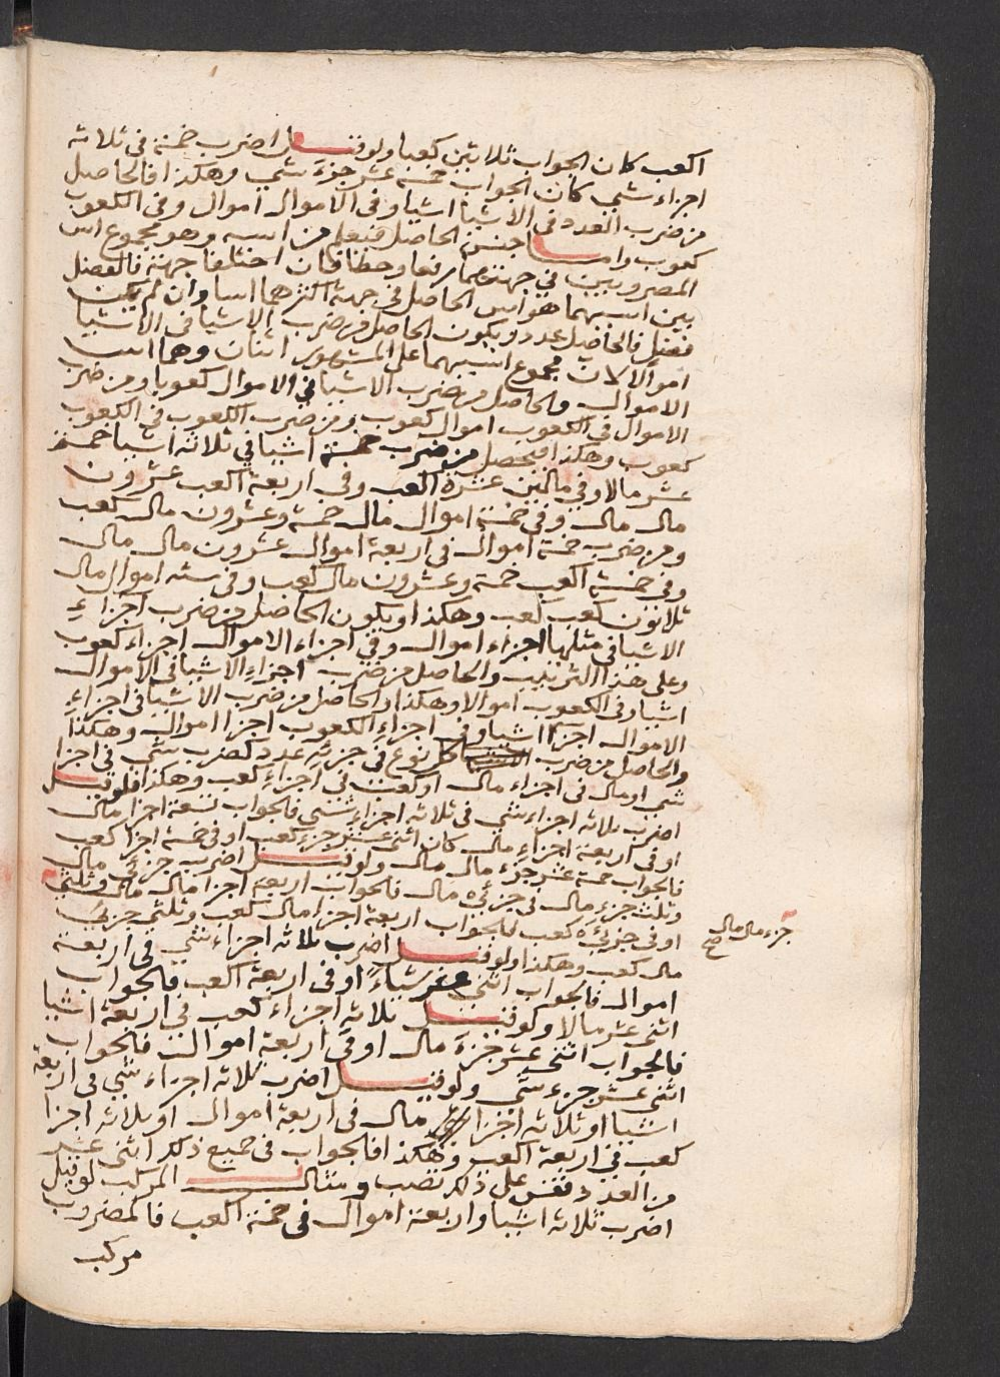 اكعب كان الجواب ثلاثين كعبا ولو قيل اضرب خمسة في ثلاثة
اجزاء شي كان الجواب خمسة عشر جزء شي وهكذا فالحاصل
من ضرب العدد في الاشيا اشيا وفي الاموال اموال وفي الكعوب
كعوب واما جنس الحاصل فيعلم من اسه وهو مجموع اس
المضروبين في جهتهما رفعا وحطا فان اختلفا جهة فالفضل
بين اسيهما هو اس الحاصل في جهة اكثرهما اسا وان لم يكن
فضل فالحاصل عدد ويكون الحاصل من ضرب الاشيا في الاشيا
اموالا لان مجموع اسيهما على المشهور اثنان وهما اس
الاموال والحاصل من ضرب الاشيا في الاموال كعوبا ومن ضرب
الاموال في الكعوب اموال كعوب ومن ضرب الكعوب في الكعوب
كعوب وهكذا فيحصل من ضرب خمسة اشيا في ثلاثة اشيا خمسة
عشر مالا وفي مالين عشرة اكعب وفي اربعة اكعب عشرون
مال مال وفي خمسة اموال مال خمسة وعشرون مال كعب
ومن ضرب خمسة اموال في اربعة اموال عشرون مال مال
وفي خمسة اكعب خمسة وعشرون مال كعب وفي ستة اموال مال
ثلاثون كعب كعب وهكذا ويكون الحاصل من ضرب اجزاء
الاشيا في مثلها اجزاء اموال وفي اجزاء الاموال اجزاء كعوب
وعلى هذا الترتيب والحاصل من ضرب اجزاء الاشيا في الاموال
اشيا وفي الكعوب اموالا وهكذا والحاصل من ضرب الاشيا في اجزاء
الاموال اجزا اشيا وفي اجزاء الكعوب اجزا اموال وهكذا
والحاصل من ضرب كل نوع في جزيه عدد كضرب شي في اجزا
شي او مال في اجزاء مال او كعب في اجزاء كعب وهكذا فلو قيل
اضرب ثلاثة اجزاء شي في ثلاثة اجزاء شي فالجواب تسعة اجزا مال
او في اربعة اجزاء مال كان اثني عشر جزء كعب او في خمسة اجزا كعب
فالجواب خمسة عشر جزء مال مال ولو قيل اضرب جزئي مال
وثلث جزء مال في جزئي مال فالجواب اربعة اجزا مال مال وثلثي
جزء مال مال صح
او في جزئي كعب فالجواب اربعة اجزا مال كعب وثلثي جزئ
مال كعب وهكذا ولو قيل اضرب ثلاثة اجزاء شي في اربعة
اموال فالجواب اثني عشر شيا او في اربعة اكعب فالجواب
اثني عشر مالا ولو قيل ثلاثة اجزاء كعب في اربعة اشيا
فالجواب اثني عشر جزء مال او في اربعة اموال فالجواب
اثني عشر جزء شي ولو قيل اضرب ثلاثة اجزاء شي في اربعة
اشيا او ثلاثة اجزا مال في اربعة اموال او ثلاثة اجزا
كعب في اربعة اكعب وهكذا فالجواب في جميع ذلك اثني عشر
من العدد فقس على ذلك تصب ومثال المركب لو قيل
اضرب ثلاثة اشيا واربعة اموال في خمسة اكعب فالمضروب
مركب